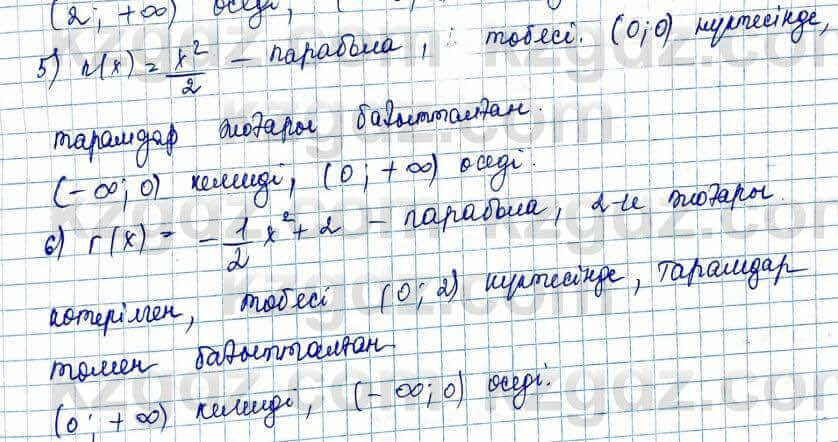 (2; +∞) өседі,
5) r(x) = x²/2 – парабола, төбесі (0;0) нүктесінде,
тармақтар жоғары бағытталған.
(-∞; 0) кемиді, (0; +∞) өседі.
6) r(x) = -1/2 x² + 2 – парабола, 2-ге жоғары
көтерілген, төбесі (0; 2) нүктесінде, тармақтар
төмен бағытталған
(0; +∞) кемиді, (-∞; 0) өседі.